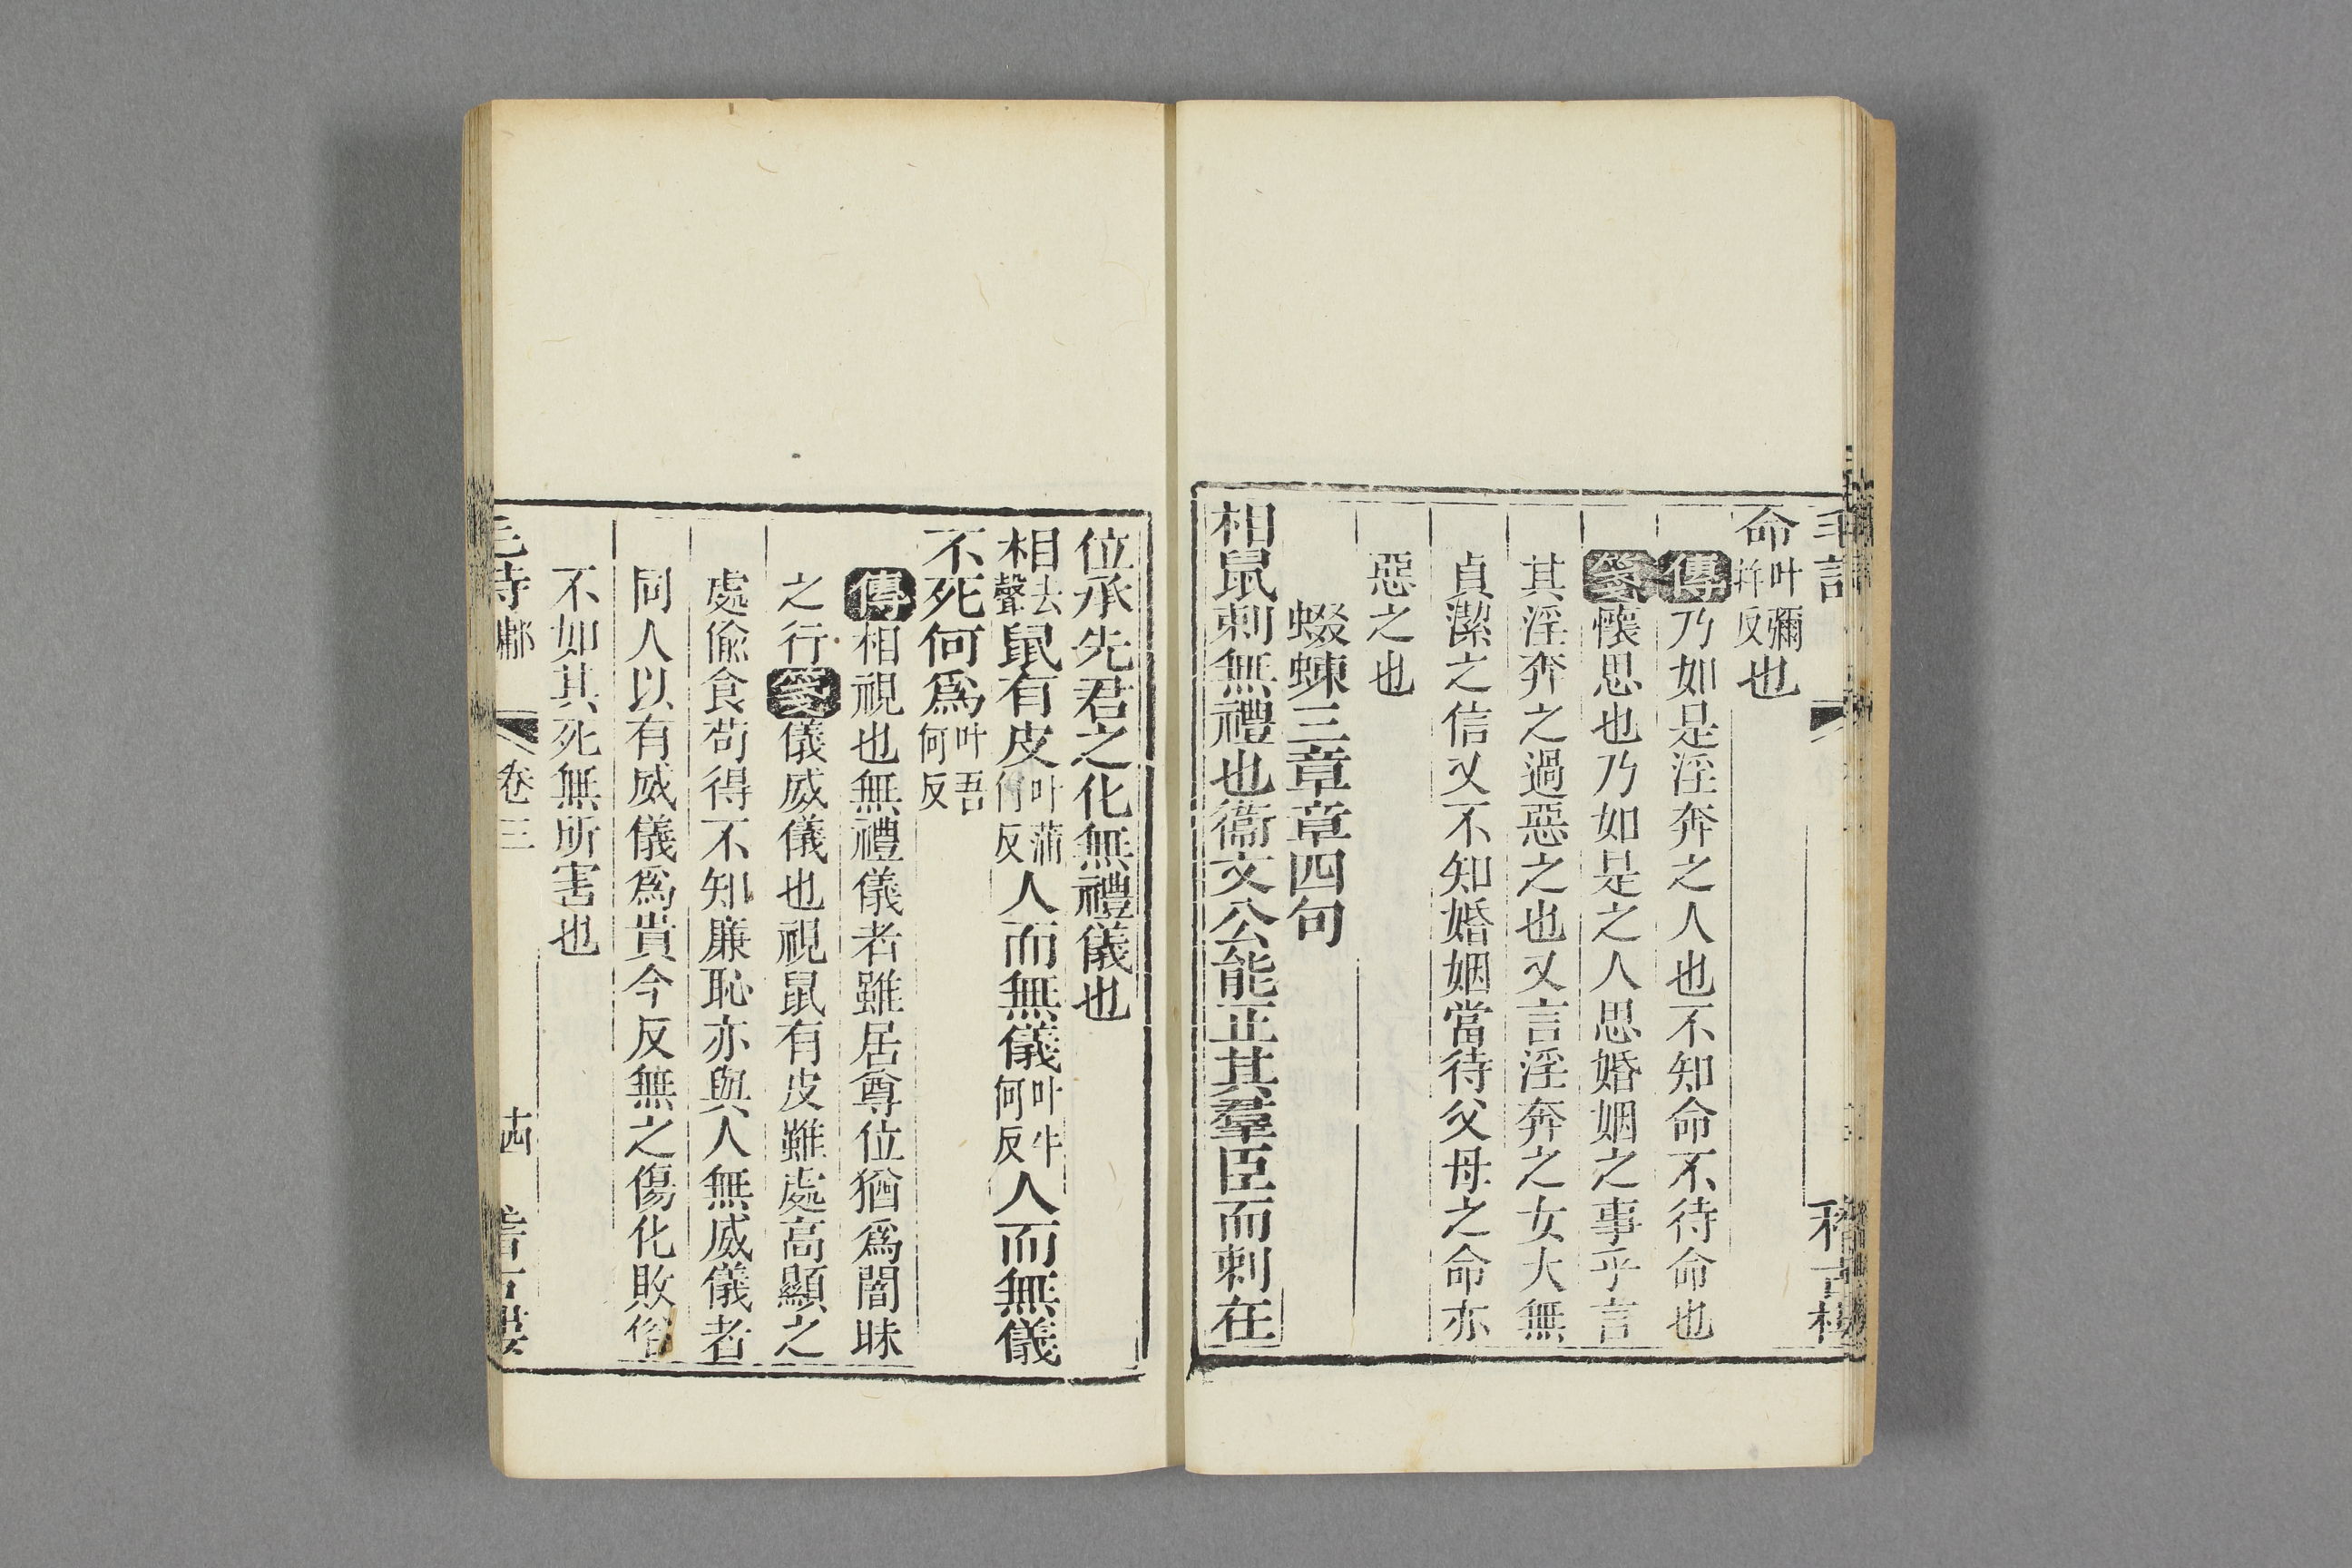 毛詩 稽古樓
命叶彌幷反也
傳乃如是淫奔之人也不知命不待命也
箋懷思也乃如是之人思婚姻之事乎言
其淫奔之過惡之也又言淫奔之女大無
貞潔之信又不知婚姻當待父母之命亦
惡之也
蝃蝀三章章四句
相鼠刺無禮也衞文公能正其羣臣而刺在
位承先君之化無禮儀也
相去聲鼠有皮叶蒲何反人而無儀叶牛何反人而無儀
不死何爲叶吾何反
傳相視也無禮儀者雖居尊位猶爲闇昧
之行箋儀威儀也視鼠有皮雖處高顯之
處偸食苟得不知廉恥亦與人無威儀者
同人以有威儀爲貴今反無之傷化敗俗
不如其死無所害也
毛詩鄘 卷三 十四 稽古樓